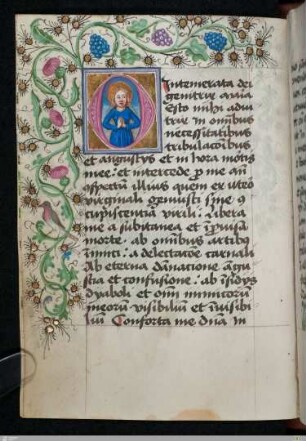 O Intemerata dei
genitrix maria
Esto mihi adiu
trix in omnibus
necessitatibus
tribulacōibus
et angustijs et in hora mortis
mee · et intercede ꝓ me an̄
illius quem ex utero
virginali genuisti sine 9
cupiscentia virili · Libera
me a subitanea et īꝓuisa
morte · ab omnibus artibꝫ
inimici · a delectatōe carnali
Ab eterna dānacione āgu
stia et confusione · ab īsidijs
dyaboli et omī inimicorū
meorū visibiliū et īuisibi
liū Conforta me dn̄a in